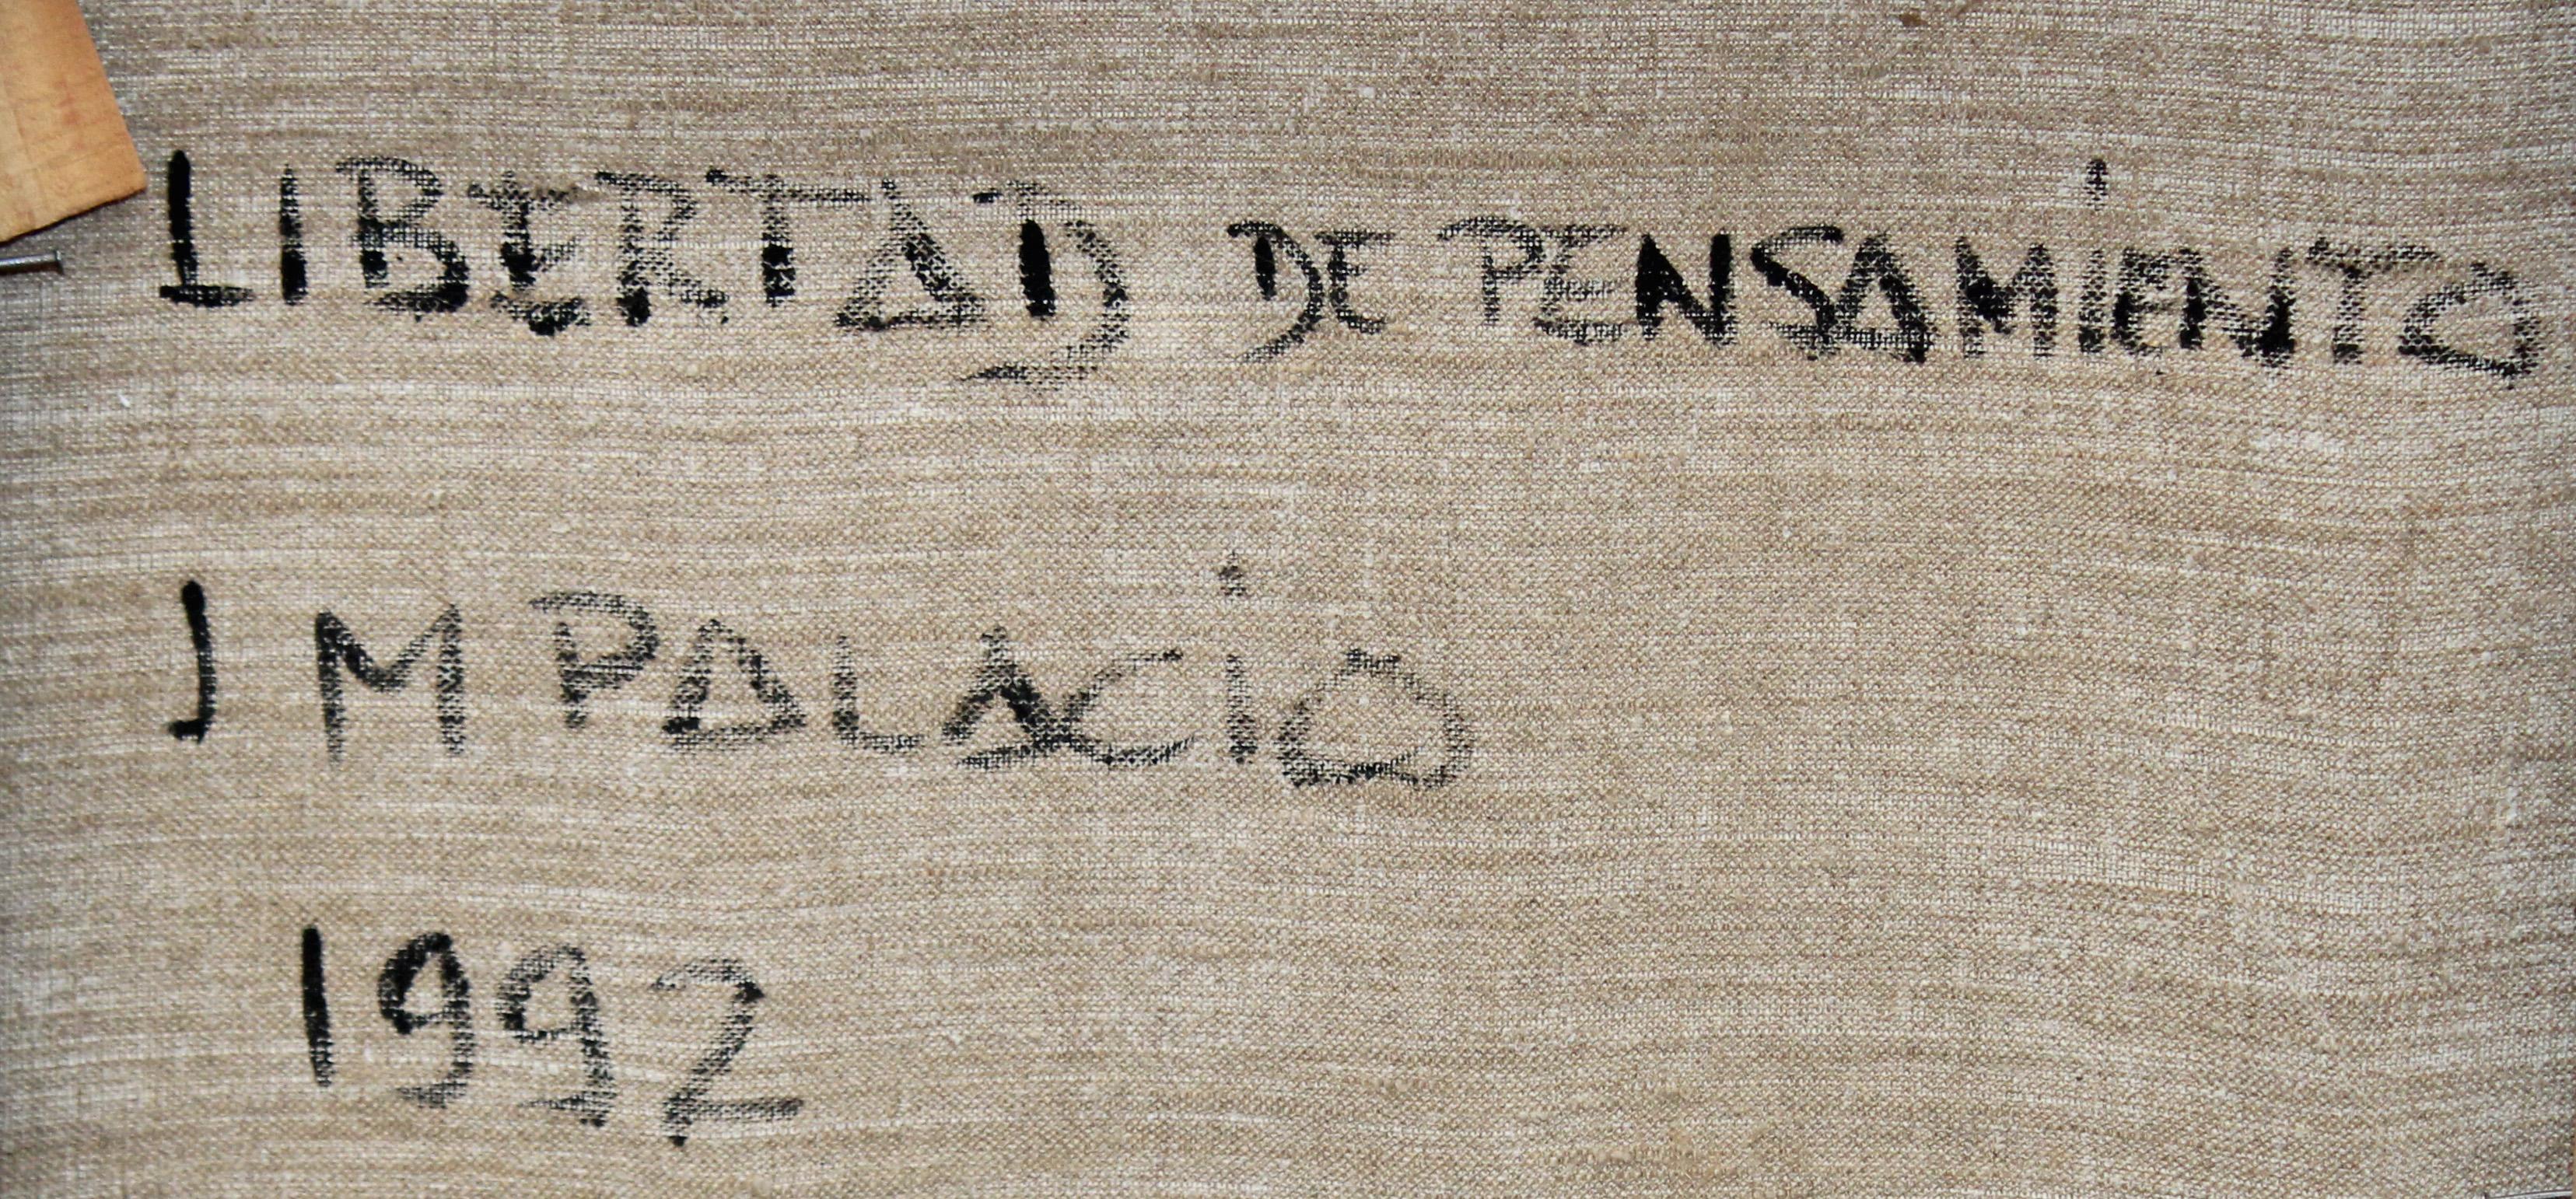 LIBERTAD DE PENSAMiENTO
J M PALACiO
1992